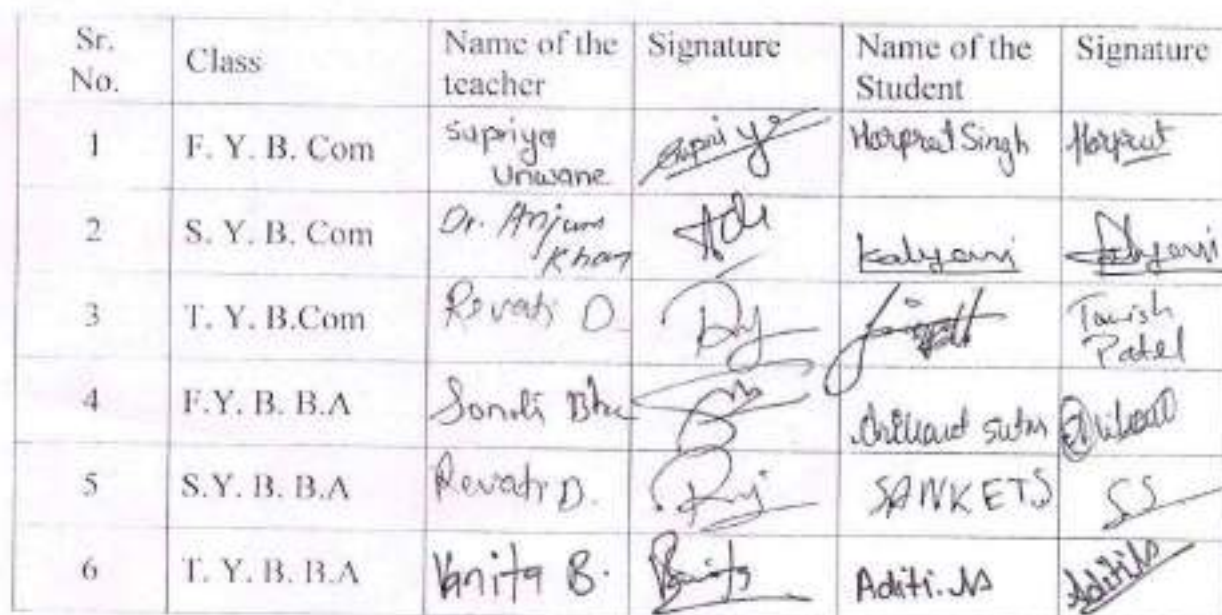 Sr. No. Class Name of the teacher Signature Name of the Student Signature
1 F. Y. B. Com Supriya Unwane Supriya Harpreet Singh Harpreet
2 S. Y. B. Com Dr. Anjum Khan Kalyani Kalyani
3 T. Y. B.Com Revati D. Tanish Patel
4 F.Y. B. B.A Sonali
5 S.Y. B. B.A Revati D. SANKET S SS
6 T. Y. B. B.A Vanita B. Vanita Aditi. Aditi